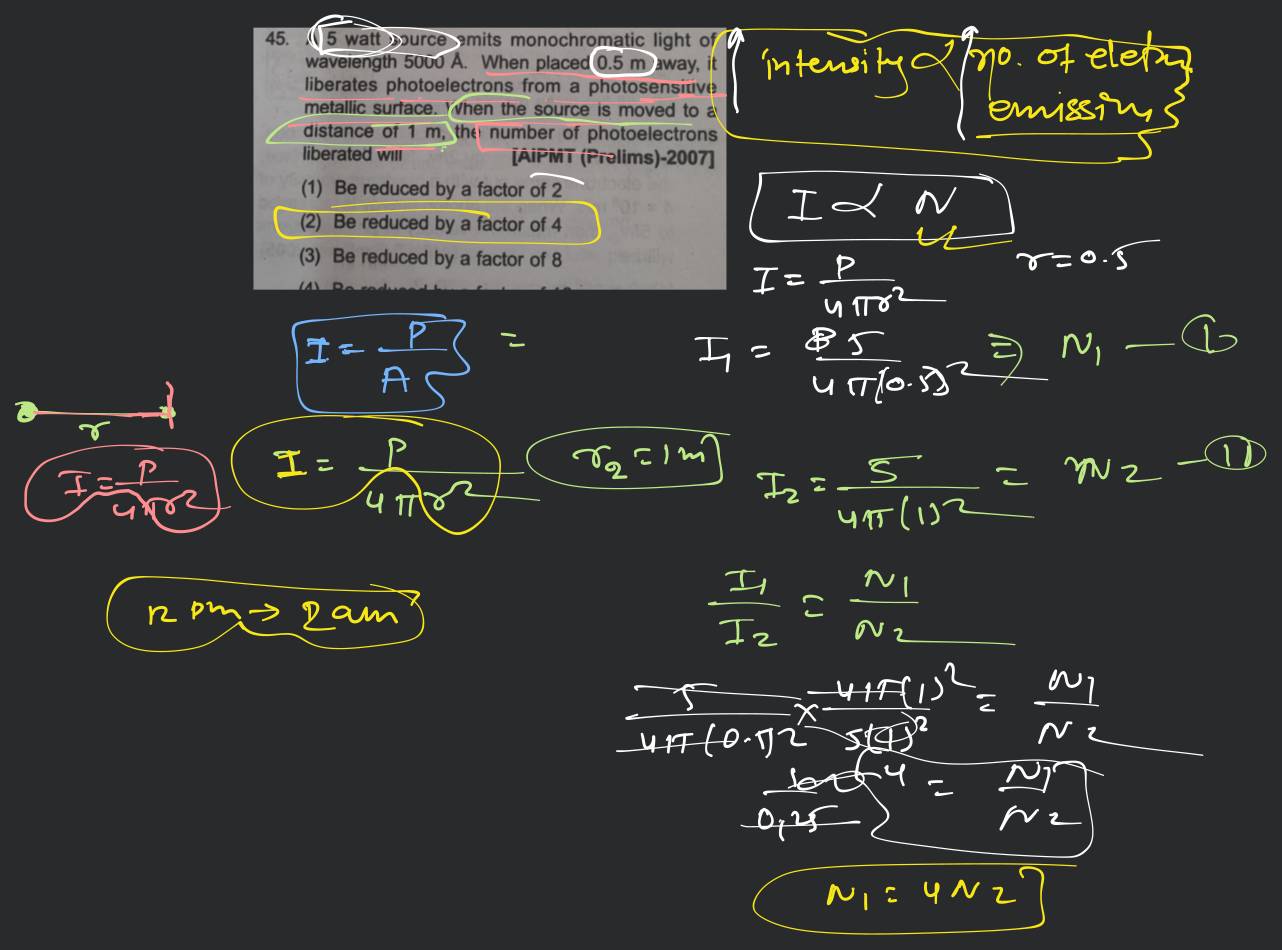 45. A 5 watt source emits monochromatic light of
wavelength 5000 Å. When placed 0.5 m away, it
liberates photoelectrons from a photosensitive
metallic surface. When the source is moved to a
distance of 1 m, the number of photoelectrons
liberated will [AIPMT (Prelims)-2007]
(1) Be reduced by a factor of 2
(2) Be reduced by a factor of 4
(3) Be reduced by a factor of 8
intensity ∝ no. of eletrn
emission
I ∝ N
I = P / 4πr²
r = 0.5
I = P / A =
I₁ = 5 / 4π(0.5)² = N₁ — ①
r
I = P / 4πr²
I = P / 4πr²
r₂ = 1m
I₂ = 5 / 4π(1)² = N2 — ⑪
I₁ / I₂ = N₁ / N₂
12 pm → 2 am
5 / 4π(0.5)2 × 4π(1)² / 5(1)² = N1 / N2
100 / 0,25 4 = N1 / N2
N₁ = 4N2